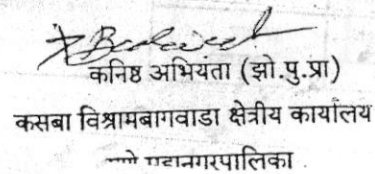 कनिष्ठ अभियंता (झो.पु.प्रा)
कसबा विश्रामबागवाडा क्षेत्रीय कार्यालय
पुणे महानगरपालिका .